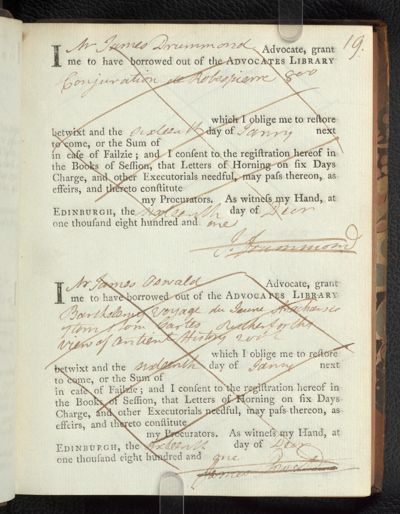 19.
I Mr James Drummond Advocate, grant
me to have borrowed out of the ADVOCATES LIBRARY
Conjuration de Robespierre 8vo
which I oblige me to restore
betwixt and the sixteenth day of Janry next
to come, or the Sum of
in case of Failzie; and I consent to the registration hereof in
the Books of Session, that Letters of Horning on six Days
Charge, and other Executorials needful, may pass thereon, as
effeirs, and thereto constitute
my Procurators. As witness my Hand, at
EDINBURGH, the sixteenth day of Decr
one thousand eight hundred and one
J. Drummond
I Mr James Oswald Advocate, grant
me to have borrowed out of the ADVOCATES LIBRARY
Barthelemy Voyage du Jeune Anacharsis
7 tom Cartes, Rutherfords
view of antient History 2 vol
which I oblige me to restore
betwixt and the sixteenth day of Janry next
to come, or the Sum of
in case of Failzie; and I consent to the registration hereof in
the Books of Session, that Letters of Horning on six Days
Charge, and other Executorials needful, may pass thereon, as
effeirs, and thereto constitute
my Procurators. As witness my Hand, at
EDINBURGH, the sixteenth day of Decr
one thousand eight hundred and one
James Oswald